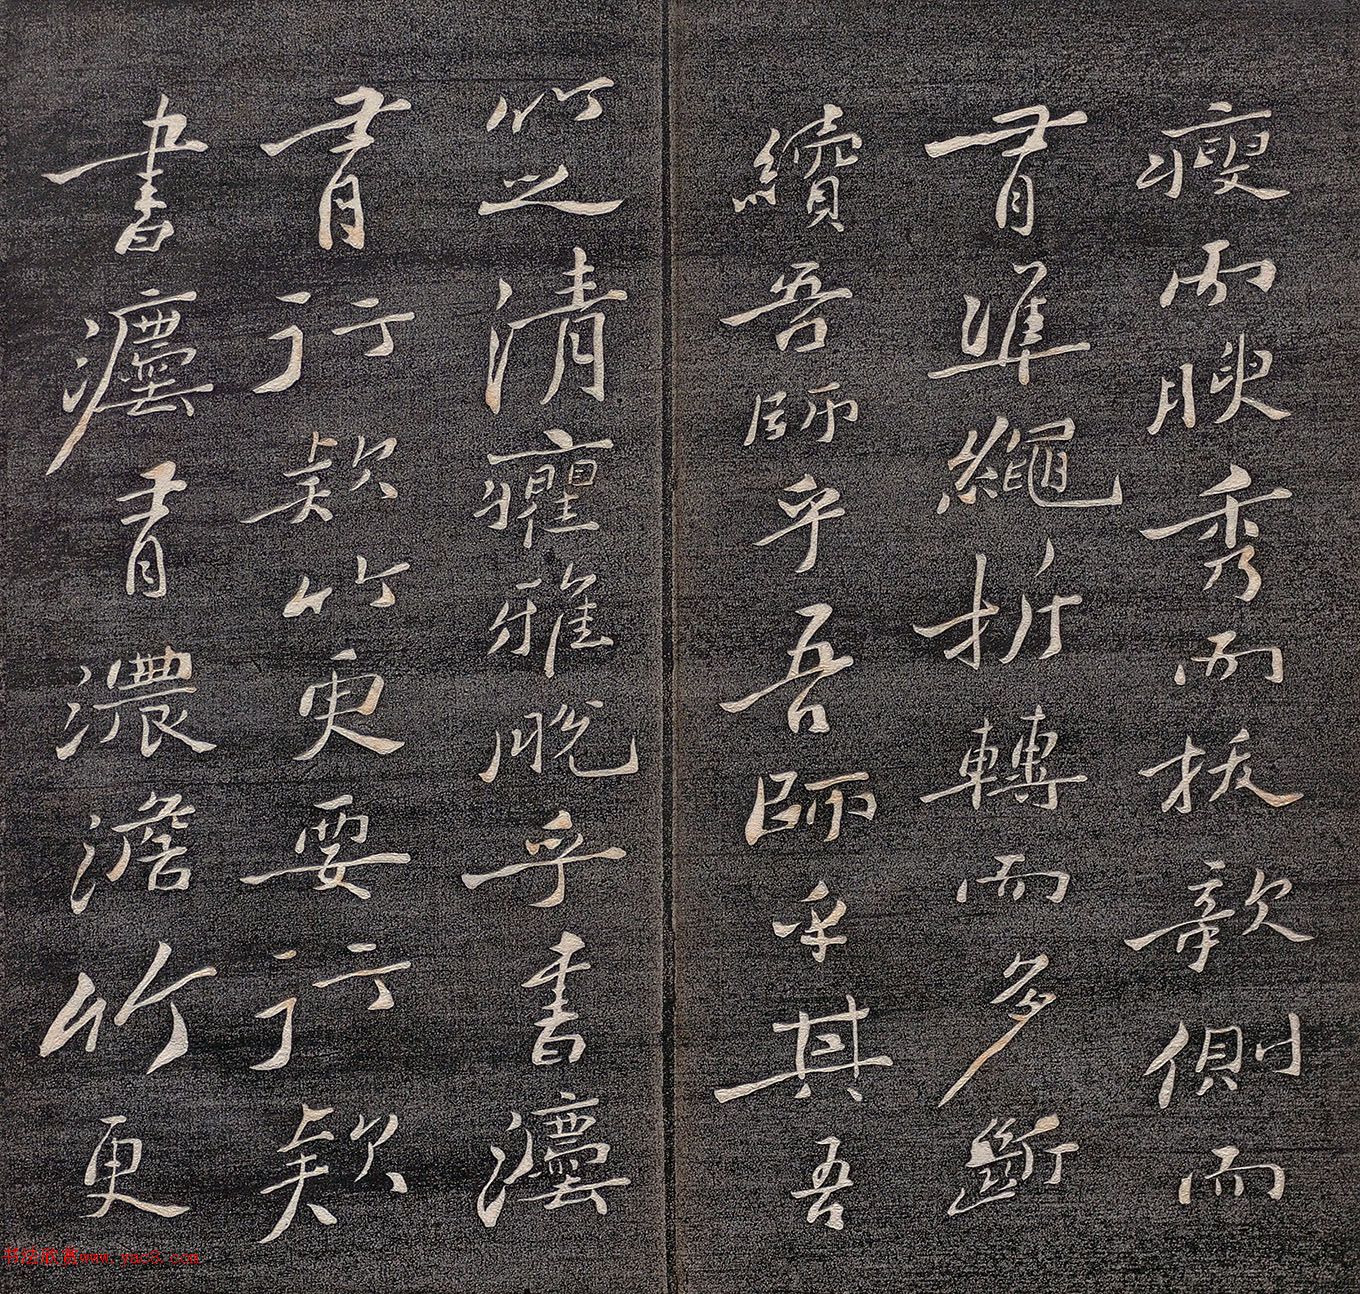 瘦而腴秀而拔欹側而
有準繩折轉而多斷
續吾師乎吾師乎其吾
竹之清癯雅脫乎書灋
有行款竹更要行款
書灋有濃澹竹更
www.yac8.com